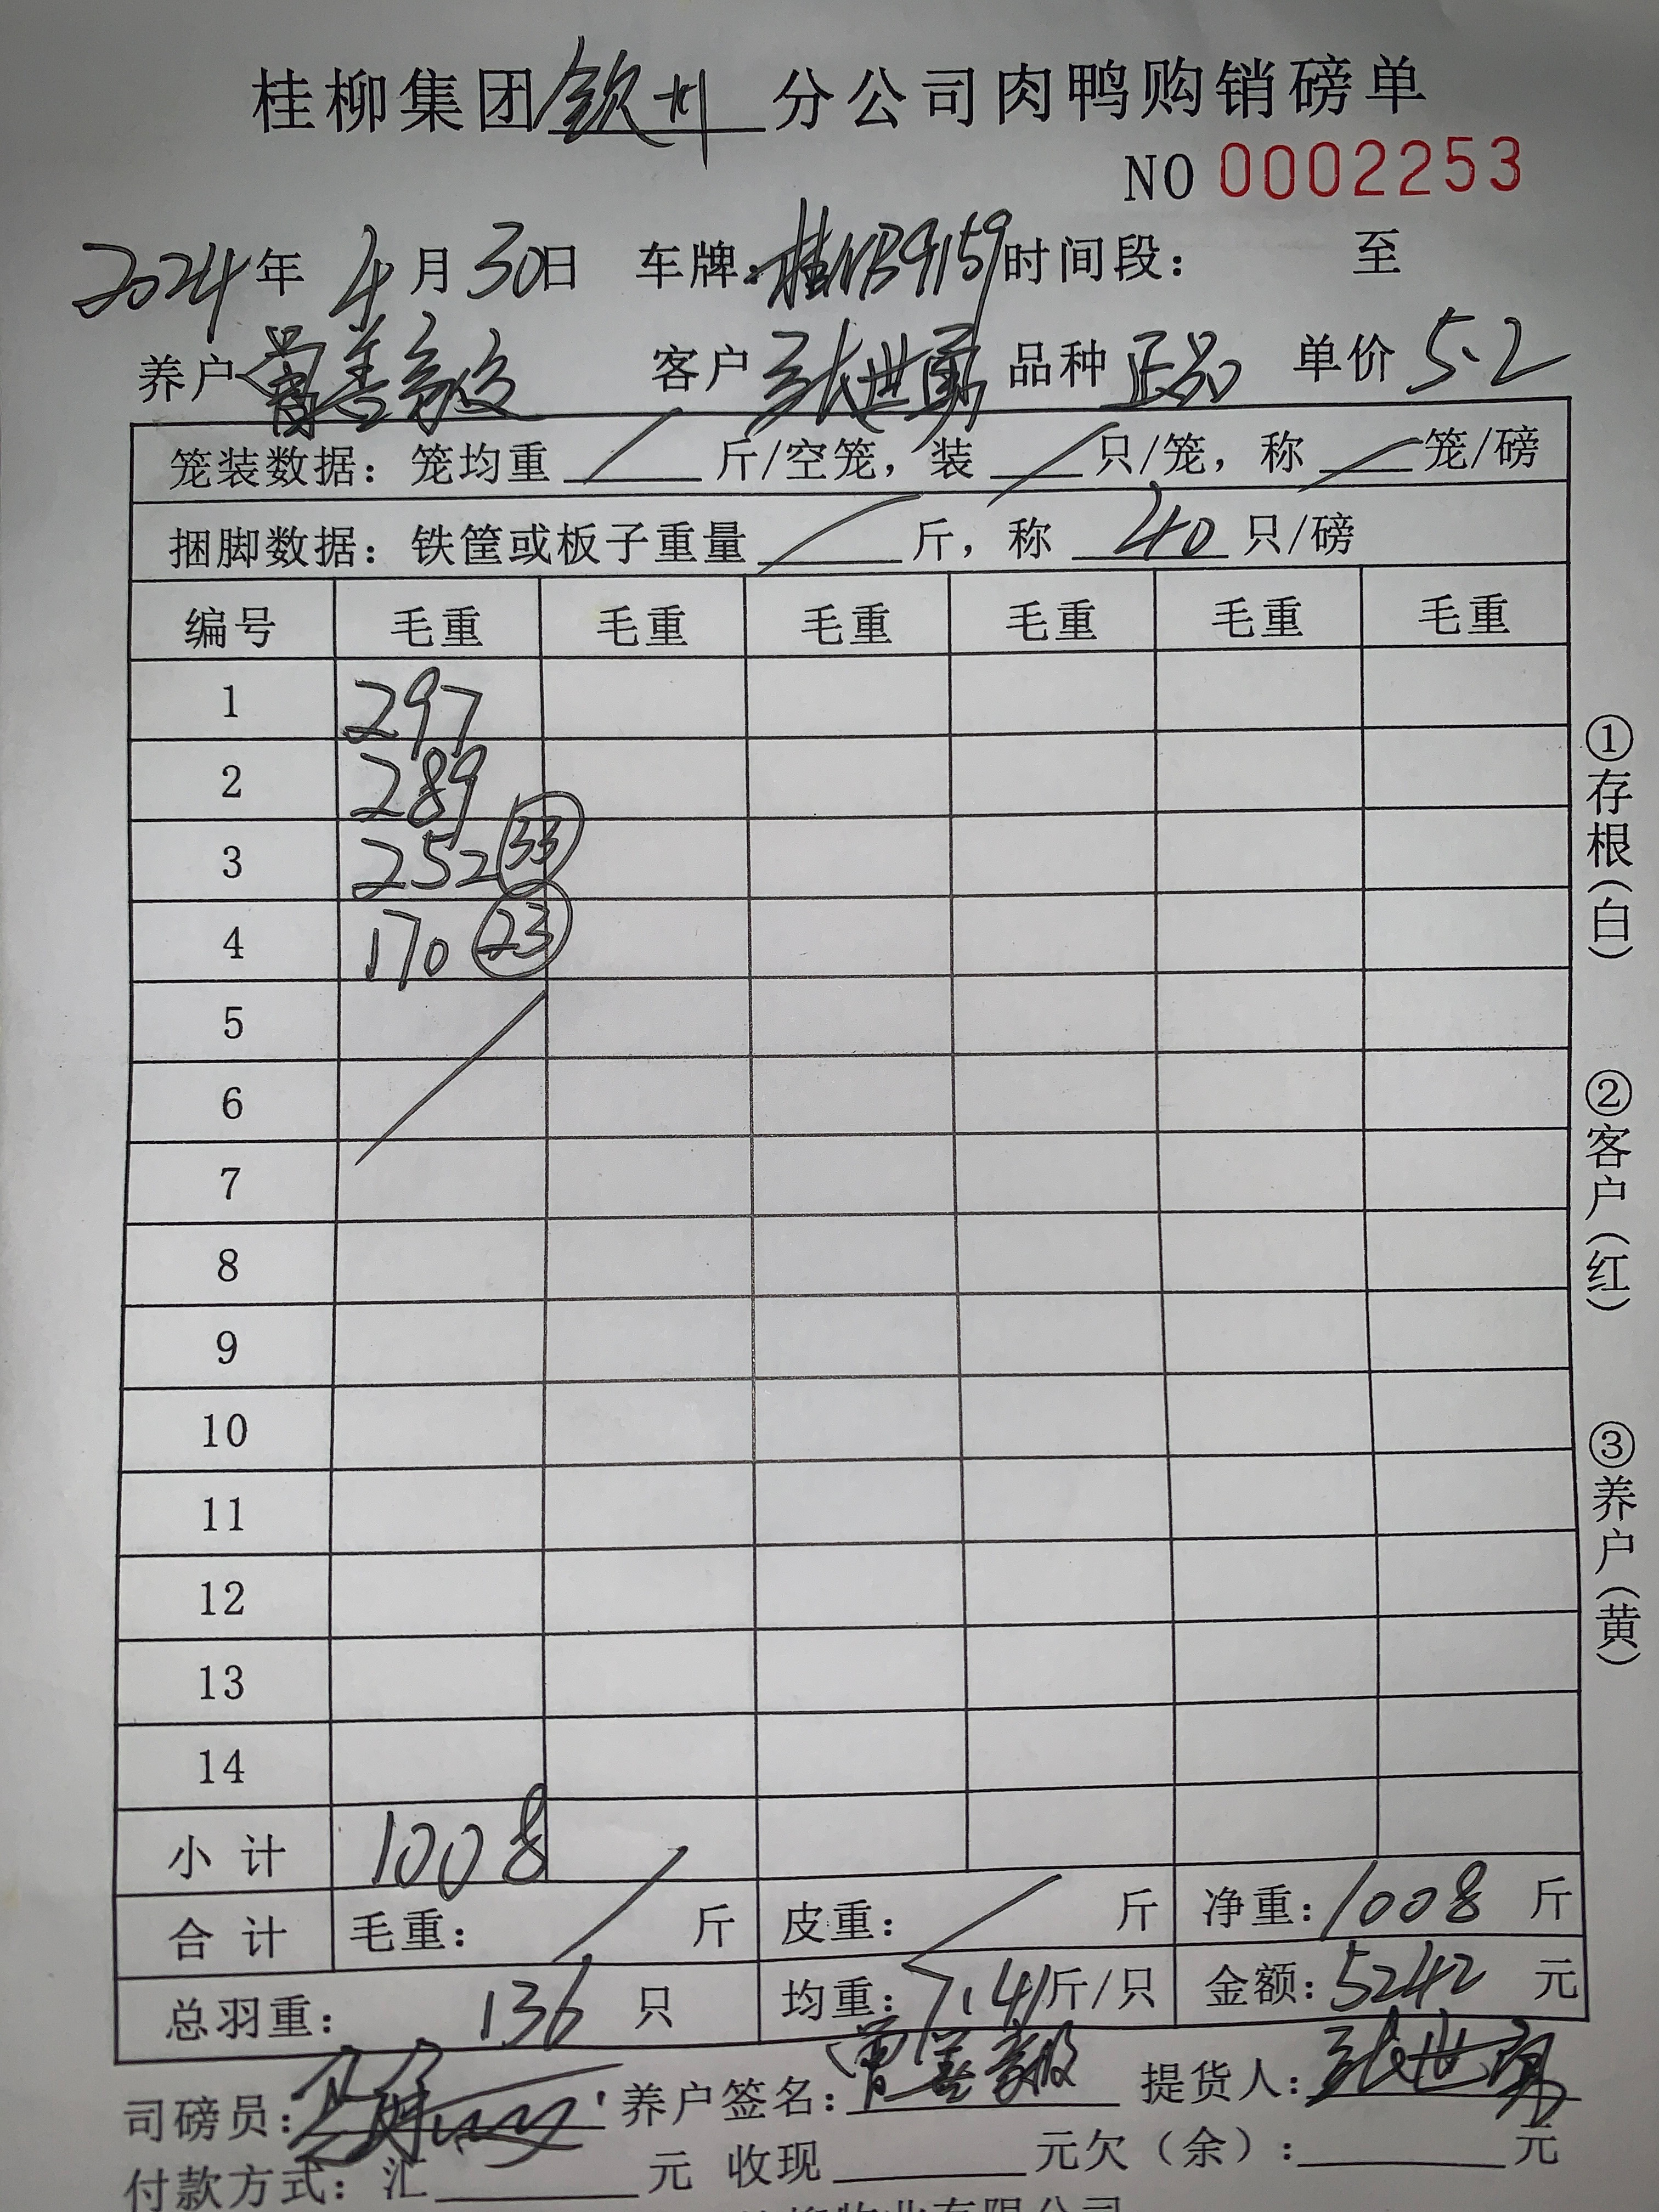 桂柳集团钦州分公司肉鸭购销磅单
NO 0002253
2024年 4月30日 车牌:桂NB9159时间段: 至
养户 曾善 客户 张世勇 品种 正品 单价 5.2
笼装数据:笼均重 / 斤/空笼,装 / 只/笼,称 / 笼/磅
捆脚数据:铁筐或板子重量 / 斤,称 40 只/磅
编号 毛重 毛重 毛重 毛重 毛重 毛重
1 297
2 289
3 252 33
4 170 23
5
6
7
8
9
10
11
12
13
14
小计 1008
合计 毛重: / 斤 皮重: / 斤 净重:1008 斤
总羽重: 136 只 均重:7.41斤/只 金额:5242 元
司磅员: 养户签名:曾善 提货人:张世勇
付款方式:汇 元 收现 元欠(余): 元
①存根(白)
②客户(红)
③养户(黄)